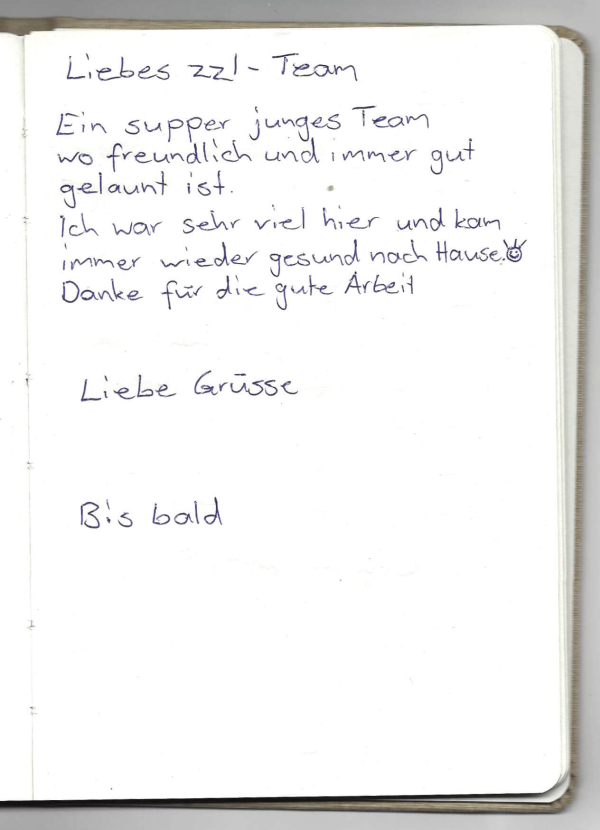 Liebes zzl - Team
Ein supper junges Team
wo freundlich und immer gut
gelaunt ist.
Ich war sehr viel hier und kam
immer wieder gesund nach Hause.
Danke für die gute Arbeit
Liebe Grüsse
Bis bald